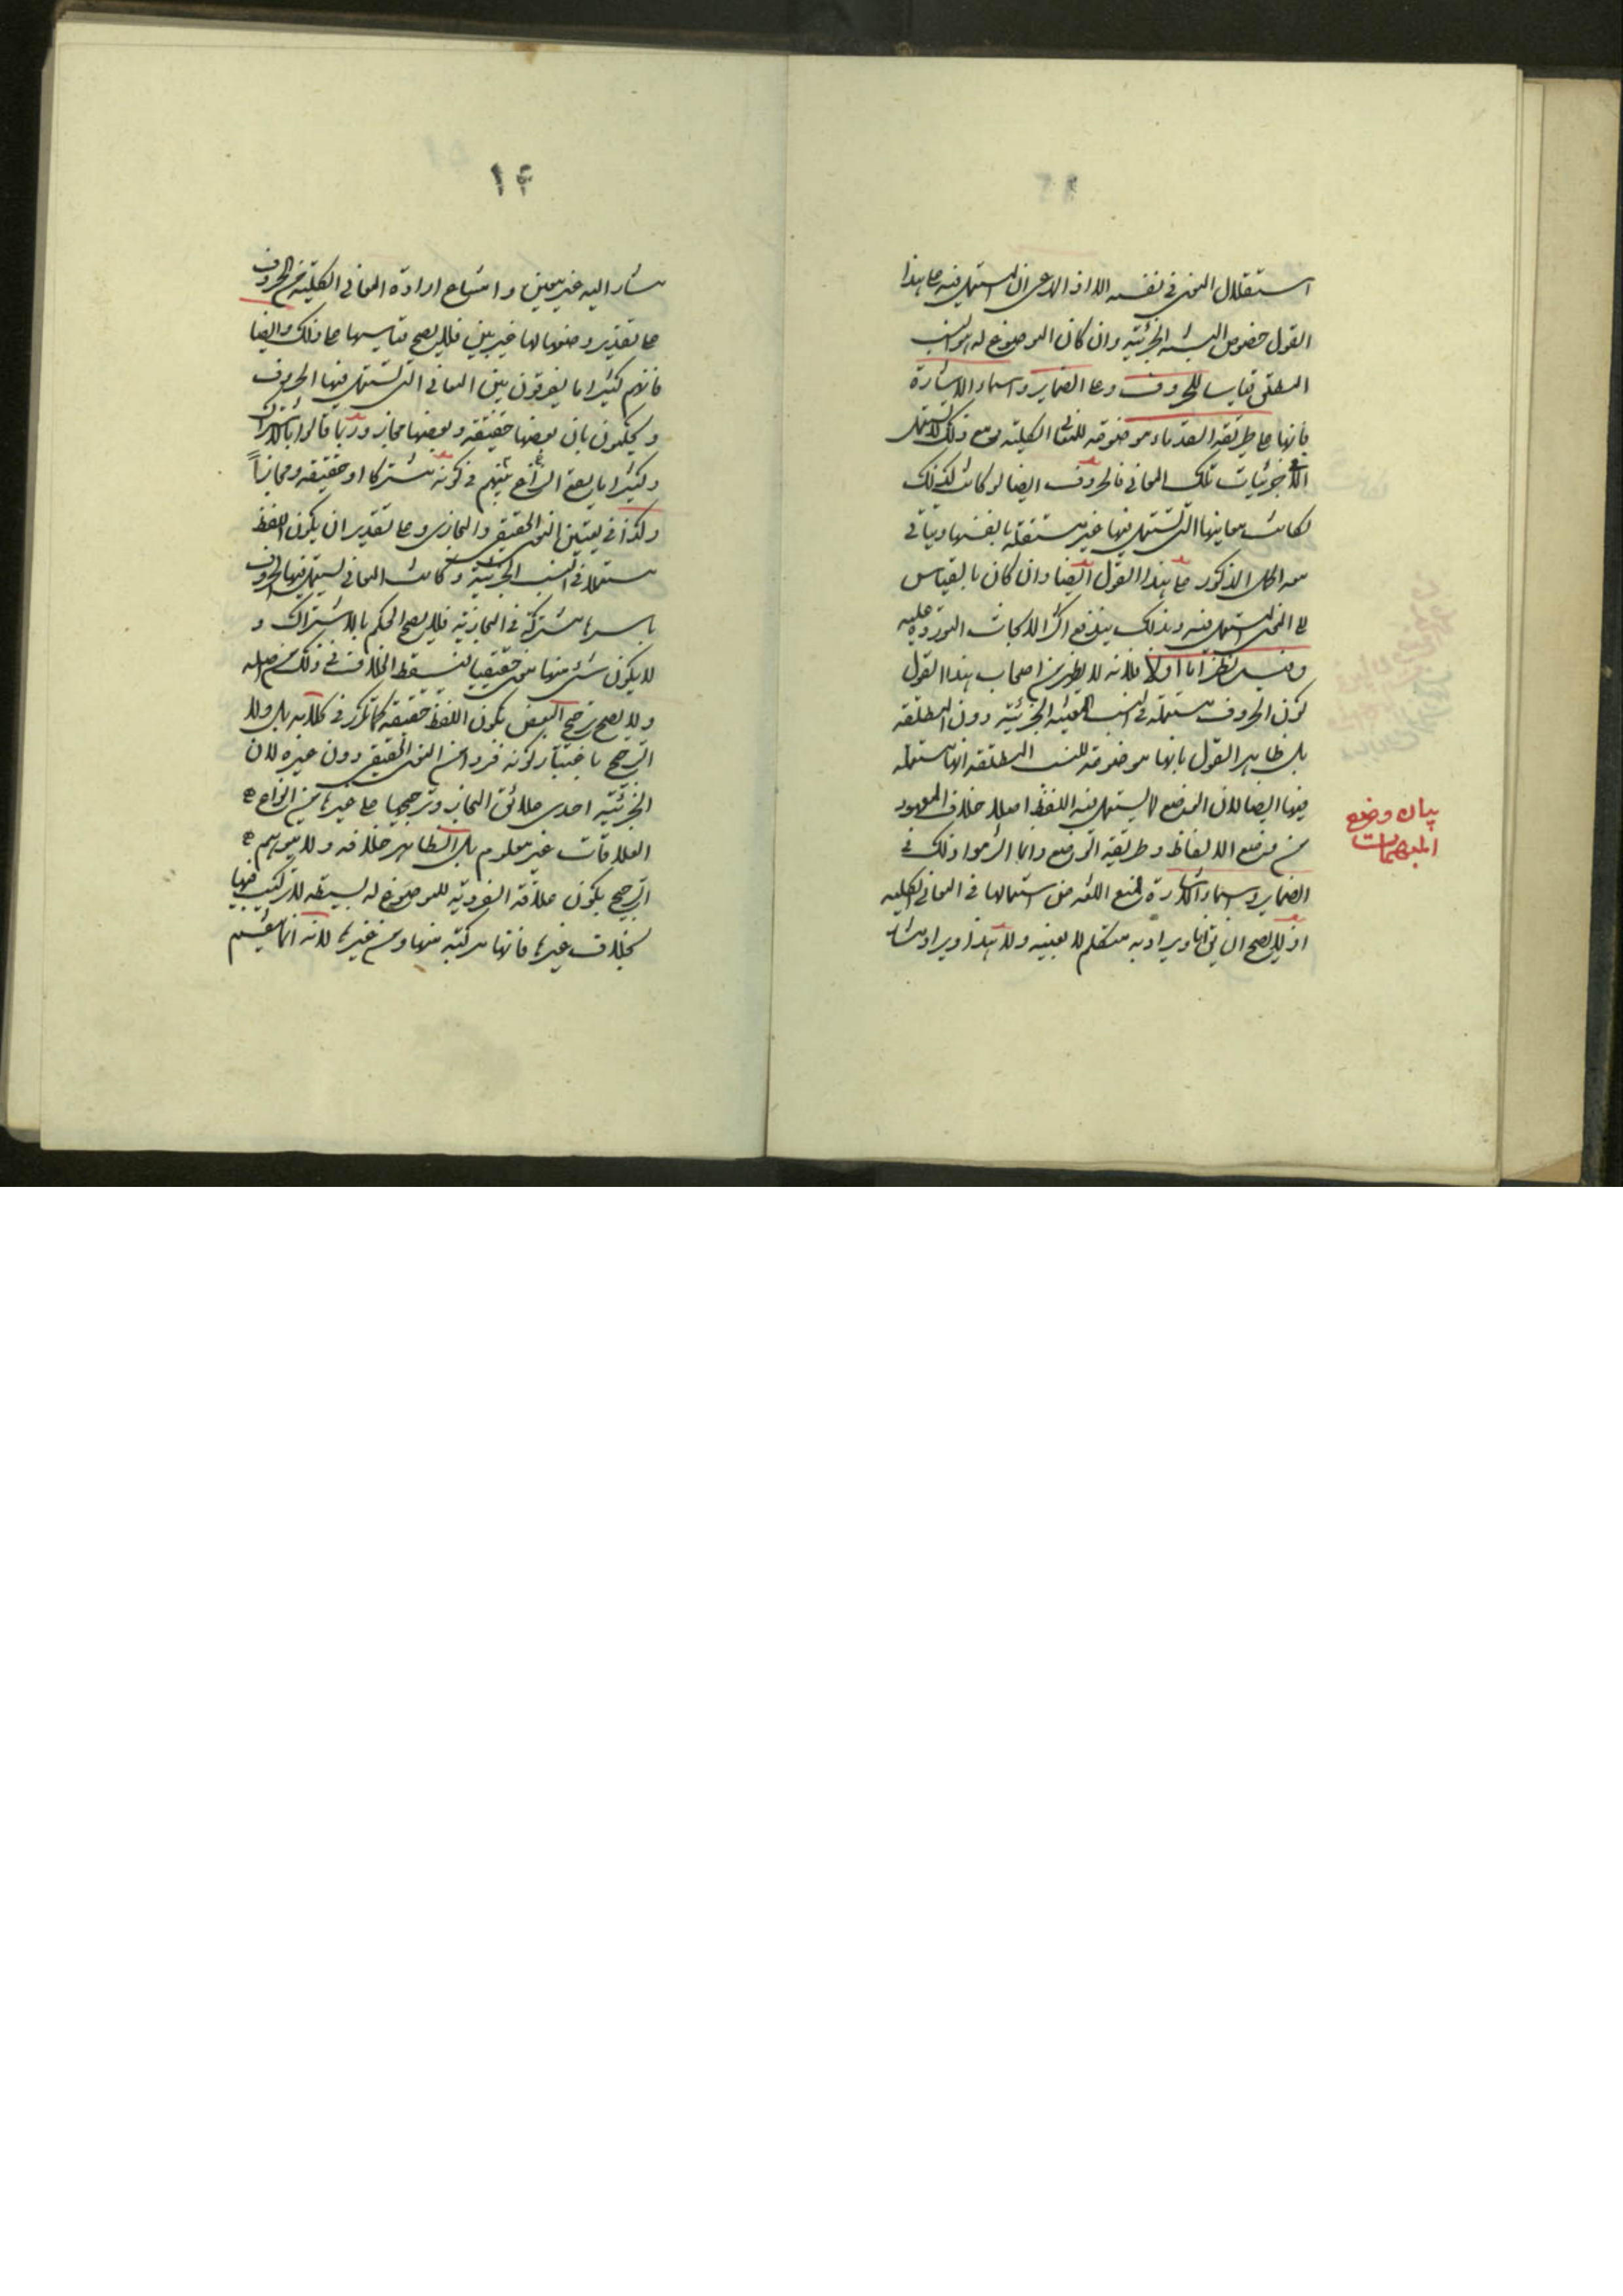 استقلال المعنى في نفسه الا ان المدعى ان المستعمل فيه على هذا
القول خصوص النسبة الجزئية وان كان الموضوع له هو النسب
المطلق قياسا للحروف وعلى الضماير واسماء الاشارة
فانها على طريقة القدماء موضوعة للمعانى الكلية ومع ذلك لا تستعمل
الا في جزئيات تلك المعاني فالحروف ايضا لو كانت كذلك
لكانت معاينها التي تستعمل فيها غير مستقلة بانفسها ويتاتى
معه الحل المذكور على هذا القول ايضا وان كان بالقياس
الى المعنى المستعمل فيه وبذلك يندفع اكثر الابحاث الموردة عليه
وفيه نظر اما اولا فلانه لا يظهر من اصحاب هذا القول
كون الحروف مستعملة في النسب المعينة الجزئية دون المطلقة
بل ظاهر القول بانها موضوعة للنسب المطلقة انها مستعملة
فيها ايضا لان الوضع لما لا يستعمل فيه اللفظ اصلا خلاف المعهود
من وضع الالفاظ وطريقة الوضع وانما التزموا ذلك في
الضماير واسماء الاشارة لمنع اللغة من استعمالها في المعاني الكلية
اذ لا يصح ان يق انا ويراد به متكلم لا بعينه ولا هذا ويراد مشار
بيان وضع
المبهمات
١۴
مشار اليه غير معين وامتناع ارادة المعاني الكلية من الحروف
على تقدير وضعها لها غير بين فلا يصح قياسها على ذلك وايضا
فانهم كثيرا ما يفرقون بين المعاني التي تستعمل فيها الحروف
ويحكمون بان بعضها حقيقة وبعضها مجاز وربما قالوا بالاشتراك
وكثيرا ما يقع النزاع بينهم في كونه مشتركا او حقيقة ومجازا
وكذا في تعيين المعنى الحقيقي والمجازي وعلى تقدير ان يكون اللفظ
مستعملا في النسب الجزئية وكانت المعاني المستعمل فيها الحروف
باسرها مشتركة في المجازية فلا يصح الحكم بالاشتراك و
لا يكون شئ منها معنى حقيقيا لتسقط الخلاف في ذلك من اصله
ولا يصح ترجيح البعض بكون اللفظ حقيقة كما تكرر في كلامهم بل ولا
الترجيح باعتبار كونه فردا من المعنى الحقيقي دون غيره لان
الجزئية احدى علائق المجاز وترجيحها على غيرها من انواع
العلاقات غير معلوم بل الظاهر خلافه ولا يتوهم
الترجيح بكون علاقة الفردية للموضوع له بسيطة لا تركيب فيها
بخلاف غيرها فانها مركبة منها ومن غيرها لانه انما يتم